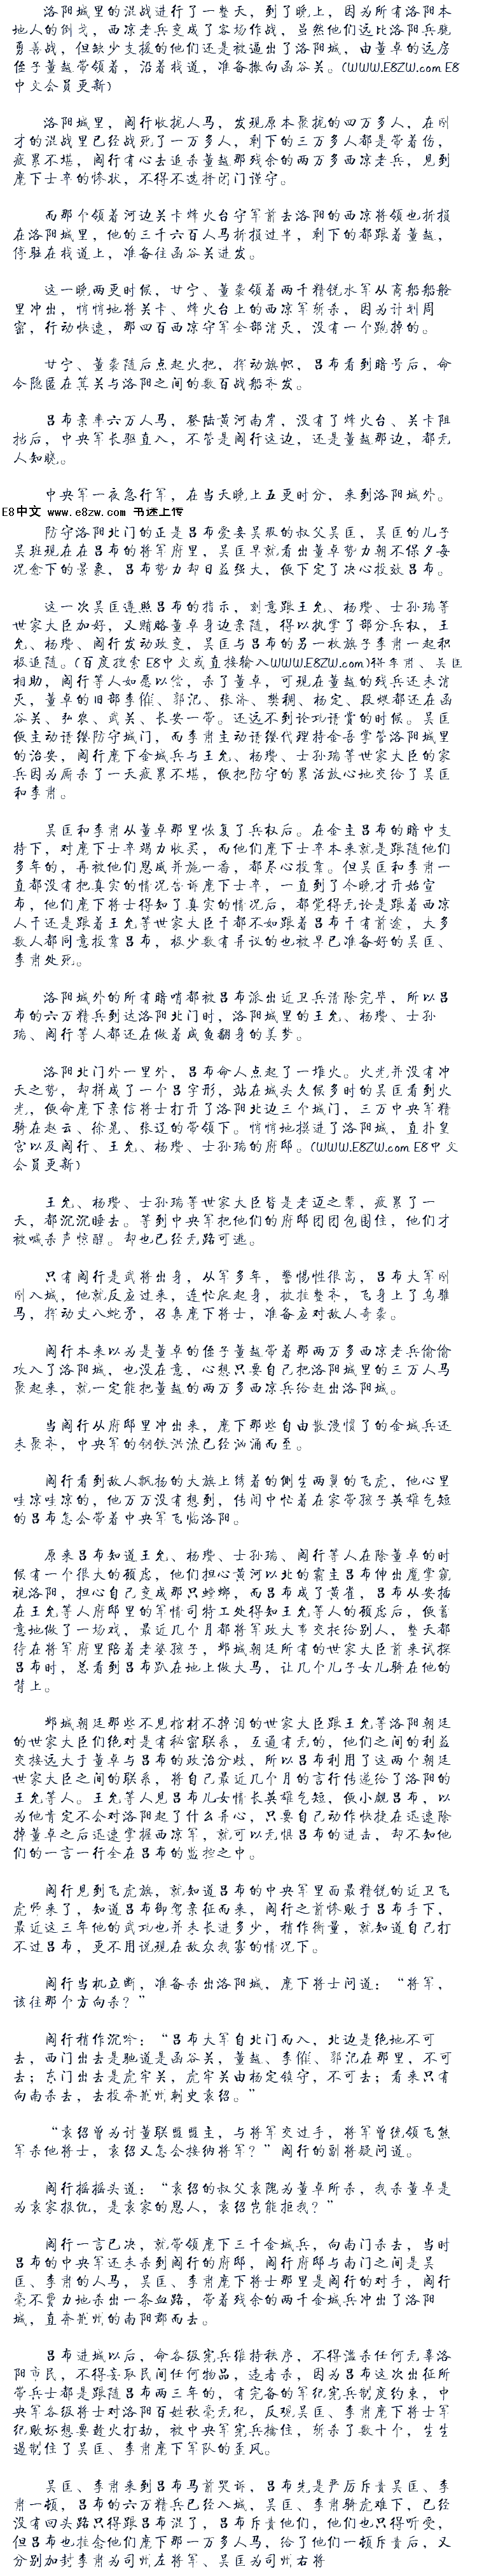 洛阳城里的混战进行了一整天，到了晚上，因为所有洛阳本
地人的倒戈，西凉老兵变成了客场作战，虽然他们远比洛阳兵骁
勇善战，但缺少支援的他们还是被逼出了洛阳城，由董卓的远房
侄子董越带领着，沿着栈道，准备撤向函谷关。(WWW.E8ZW.com E8
中文会员更新)
洛阳城里，阎行收拢人马，发现原本聚拢的四万多人，在刚
才的混战里已经战死了一万多人，剩下的三万多人都是带着伤，
疲累不堪，阎行有心去追杀董越那残余的两万多西凉老兵，见到
麾下士卒的惨状，不得不选择闭门谨守。
而那个领着河边关卡烽火台守军前去洛阳的西凉将领也折损
在洛阳城里，他的三千六百人马折损过半，剩下的都跟着董越，
停驻在栈道上，准备往函谷关进发。
这一晚两更时候，甘宁、董袭领着两千精锐水军从商船船舱
里冲出，悄悄地将关卡、烽火台上的西凉军斩杀，因为计划周
密，行动快速，那四百西凉守军全部消灭，没有一个跑掉的。
甘宁、董袭随后点起火把，挥动旗帜，吕布看到暗号后，命
令隐匿在箕关与洛阳之间的数百战船齐发。
吕布亲率六万人马，登陆黄河南岸，没有了烽火台、关卡阻
挡后，中央军长驱直入，不管是阎行这边，还是董越那边，都无
人知晓。
中央军一夜急行军，在当天晚上五更时分，来到洛阳城外。
E8中文 www.e8zw.com 书迷上传
防守洛阳北门的正是吕布爱妾吴苋的叔父吴匡，吴匡的儿子
吴班现在在吕布的将军府里，吴匡早就看出董卓势力朝不保夕每
况愈下的景象，吕布势力却日益强大，便下定了决心投效吕布。
这一次吴匡遵照吕布的指示，刻意跟王允、杨瓒、士孙瑞等
世家大臣加好，又贿赂董卓身边亲随，得以执掌了部分兵权，王
允、杨瓒、阎行发动政变，吴匡与吕布的另一枚旗子李肃一起积
极追随。(百度搜索 E8中文或直接输入WWW.E8ZW.com)将李肃、吴匡
相助，阎行等人如愿以尝，杀了董卓，可现在董越的残兵还未消
灭，董卓的旧部李傕、郭汜、张济、樊稠、杨定、段煨都还在函
谷关、弘农、武关、长安一带。还远不到论功请赏的时候。吴匡
便主动请缨防守城门，而李肃主动请缨代理持金吾掌管洛阳城里
的治安，阎行麾下金城兵与王允、杨瓒、士孙瑞等世家大臣的家
兵因为厮杀了一天疲累不堪，便把防守的累活放心地交给了吴匡
和李肃。
吴匡和李肃从董卓那里恢复了兵权后。在金主吕布的暗中支
持下，对麾下士卒竭力收买，而他们麾下士卒本来就是跟随他们
多年的，再被他们恩威并施一番，都尽心投靠。但吴匡和李肃一
直都没有把真实的情况告诉麾下士卒，一直到了今晚才开始宣
布，他们麾下将士得知了真实的情况后，都觉得无论是跟着西凉
人干还是跟着王允等世家大臣干都不如跟着吕布干有前途，大多
数人都同意投靠吕布，极少数有异议的也被早已准备好的吴匡、
李肃处死。
洛阳城外的所有暗哨都被吕布派出近卫兵清除完毕，所以吕
布的六万精兵到达洛阳北门时，洛阳城里的王允、杨瓒、士孙
瑞、阎行等人都还在做着咸鱼翻身的美梦。
洛阳北门外一里外，吕布命人点起了一堆火。火光并没有冲
天之势，却拼成了一个吕字形，站在城头久候多时的吴匡看到火
光，便命麾下亲信将士打开了洛阳北边三个城门，三万中央军精
骑在赵云、徐晃、张辽的带领下。悄悄地摸进了洛阳城，直扑皇
宫以及阎行、王允、杨瓒、士孙瑞的府邸。(WWW.E8ZW.com E8中文
会员更新)
王允、杨瓒、士孙瑞等世家大臣皆是老迈之辈，疲累了一
天，都沉沉睡去。等到中央军把他们的府邸团团包围住，他们才
被喊杀声惊醒。却也已经无路可逃。
只有阎行是武将出身，从军多年，警惕性很高，吕布大军刚
刚入城，他就反应过来，连忙爬起身，披挂整齐，飞身上了乌骓
马，挥动丈八蛇矛，召集麾下将士，准备应对敌人奇袭。
阎行本来以为是董卓的侄子董越带着那两万多西凉老兵偷偷
攻入了洛阳城，也没在意，心想只要自己把洛阳城里的三万人马
聚起来，就一定能把董越的两万多西凉兵给赶出洛阳城。
当阎行从府邸里冲出来，麾下那些自由散漫惯了的金城兵还
未聚齐，中央军的钢铁洪流已经汹涌而至。
阎行看到敌人飘扬的大旗上绣着的侧生两翼的飞虎，他心里
哇凉哇凉的，他万万没有想到，传闻中忙着在家带孩子英雄气短
的吕布怎会带着中央军飞临洛阳。
原来吕布知道王允、杨瓒、士孙瑞、阎行等人在除董卓的时
候有一个很大的顾虑，他们担心黄河以北的霸主吕布伸出魔掌窥
视洛阳，担心自己变成那只螳螂，而吕布成了黄雀，吕布从安插
在王允等人府邸里的军情司特工处得知王允等人的顾虑后，便着
意地做了一场戏，最近几个月都将军政大事交托给别人，整天都
待在将军府里陪着老婆孩子，邺城朝廷所有的世家大臣前来试探
吕布时，总看到吕布趴在地上做大马，让几个儿子女儿骑在他的
背上。
邺城朝廷那些不见棺材不掉泪的世家大臣跟王允等洛阳朝廷
的世家大臣们绝对是有秘密联系，互通有无的，他们之间的利益
交接远大于董卓与吕布的政治分歧，所以吕布利用了这两个朝廷
世家大臣之间的联系，将自己最近几个月的言行传递给了洛阳的
王允等人。王允等人见吕布儿女情长英雄气短，便小觑吕布，以
为他肯定不会对洛阳起了什么异心，只要自己动作快捷在迅速除
掉董卓之后迅速掌握西凉军，就可以无惧吕布的进击，却不知他
们的一言一行全在吕布的监控之中。
阎行见到飞虎旗，就知道吕布的中央军里面最精锐的近卫飞
虎师来了，知道吕布御驾亲征而来，阎行之前惨败于吕布手下，
最近这三年他的武功也并未长进多少，稍作衡量，就知道自己打
不过吕布，更不用说现在敌众我寡的情况下。
阎行当机立断，准备杀出洛阳城，麾下将士问道：“将军，
该往那个方向杀？”
阎行稍作沉吟：“吕布大军自北门而入，北边是绝地不可
去，西门出去是驰道是函谷关，董越、李傕、郭汜在那里，不可
去；东门出去是虎牢关，虎牢关由杨定镇守，不可去；看来只有
向南杀去，去投奔荆州刺史袁绍。”
“袁绍曾为讨董联盟盟主，与将军交过手，将军曾统领飞熊
军杀他将士，袁绍又怎会接纳将军？”阎行的副将疑问道。
阎行摇摇头道：“袁绍的叔父袁隗为董卓所杀，我杀董卓是
为袁家报仇，是袁家的恩人，袁绍岂能拒我？”
阎行一言已决，就带领麾下三千金城兵，向南门杀去，当时
吕布的中央军还未杀到阎行的府邸，阎行府邸与南门之间是吴
匡、李肃的人马，吴匡、李肃麾下将士那里是阎行的对手，阎行
毫不费力地杀出一条血路，带着残余的两千金城兵冲出了洛阳
城，直奔荆州的南阳郡而去。
吕布进城以后，命各级宪兵维持秩序，不得滥杀任何无辜洛
阳市民，不得妄取民间任何物品，违者杀，因为吕布这次出征所
带兵士都是跟随吕布两三年的，有完备的军纪宪兵制度约束，中
央军各级将士对洛阳百姓秋毫无犯，反观吴匡、李肃麾下将士军
纪败坏想要趁火打劫，被中央军宪兵擒住，斩杀了数十个，生生
遏制住了吴匡、李肃麾下军队的歪风。
吴匡、李肃来到吕布马前哭诉，吕布先是严厉斥责吴匡、李
肃一顿，吕布的六万精兵已经入城，吴匡、李肃骑虎难下，已经
没有回头路只得跟吕布混了，吕布斥责他们，他们也只得听受，
但吕布也挂念他们麾下那一万多人马，给了他们一顿斥责后，又
分别加封李肃为司州左将军、吴匡为司州右将